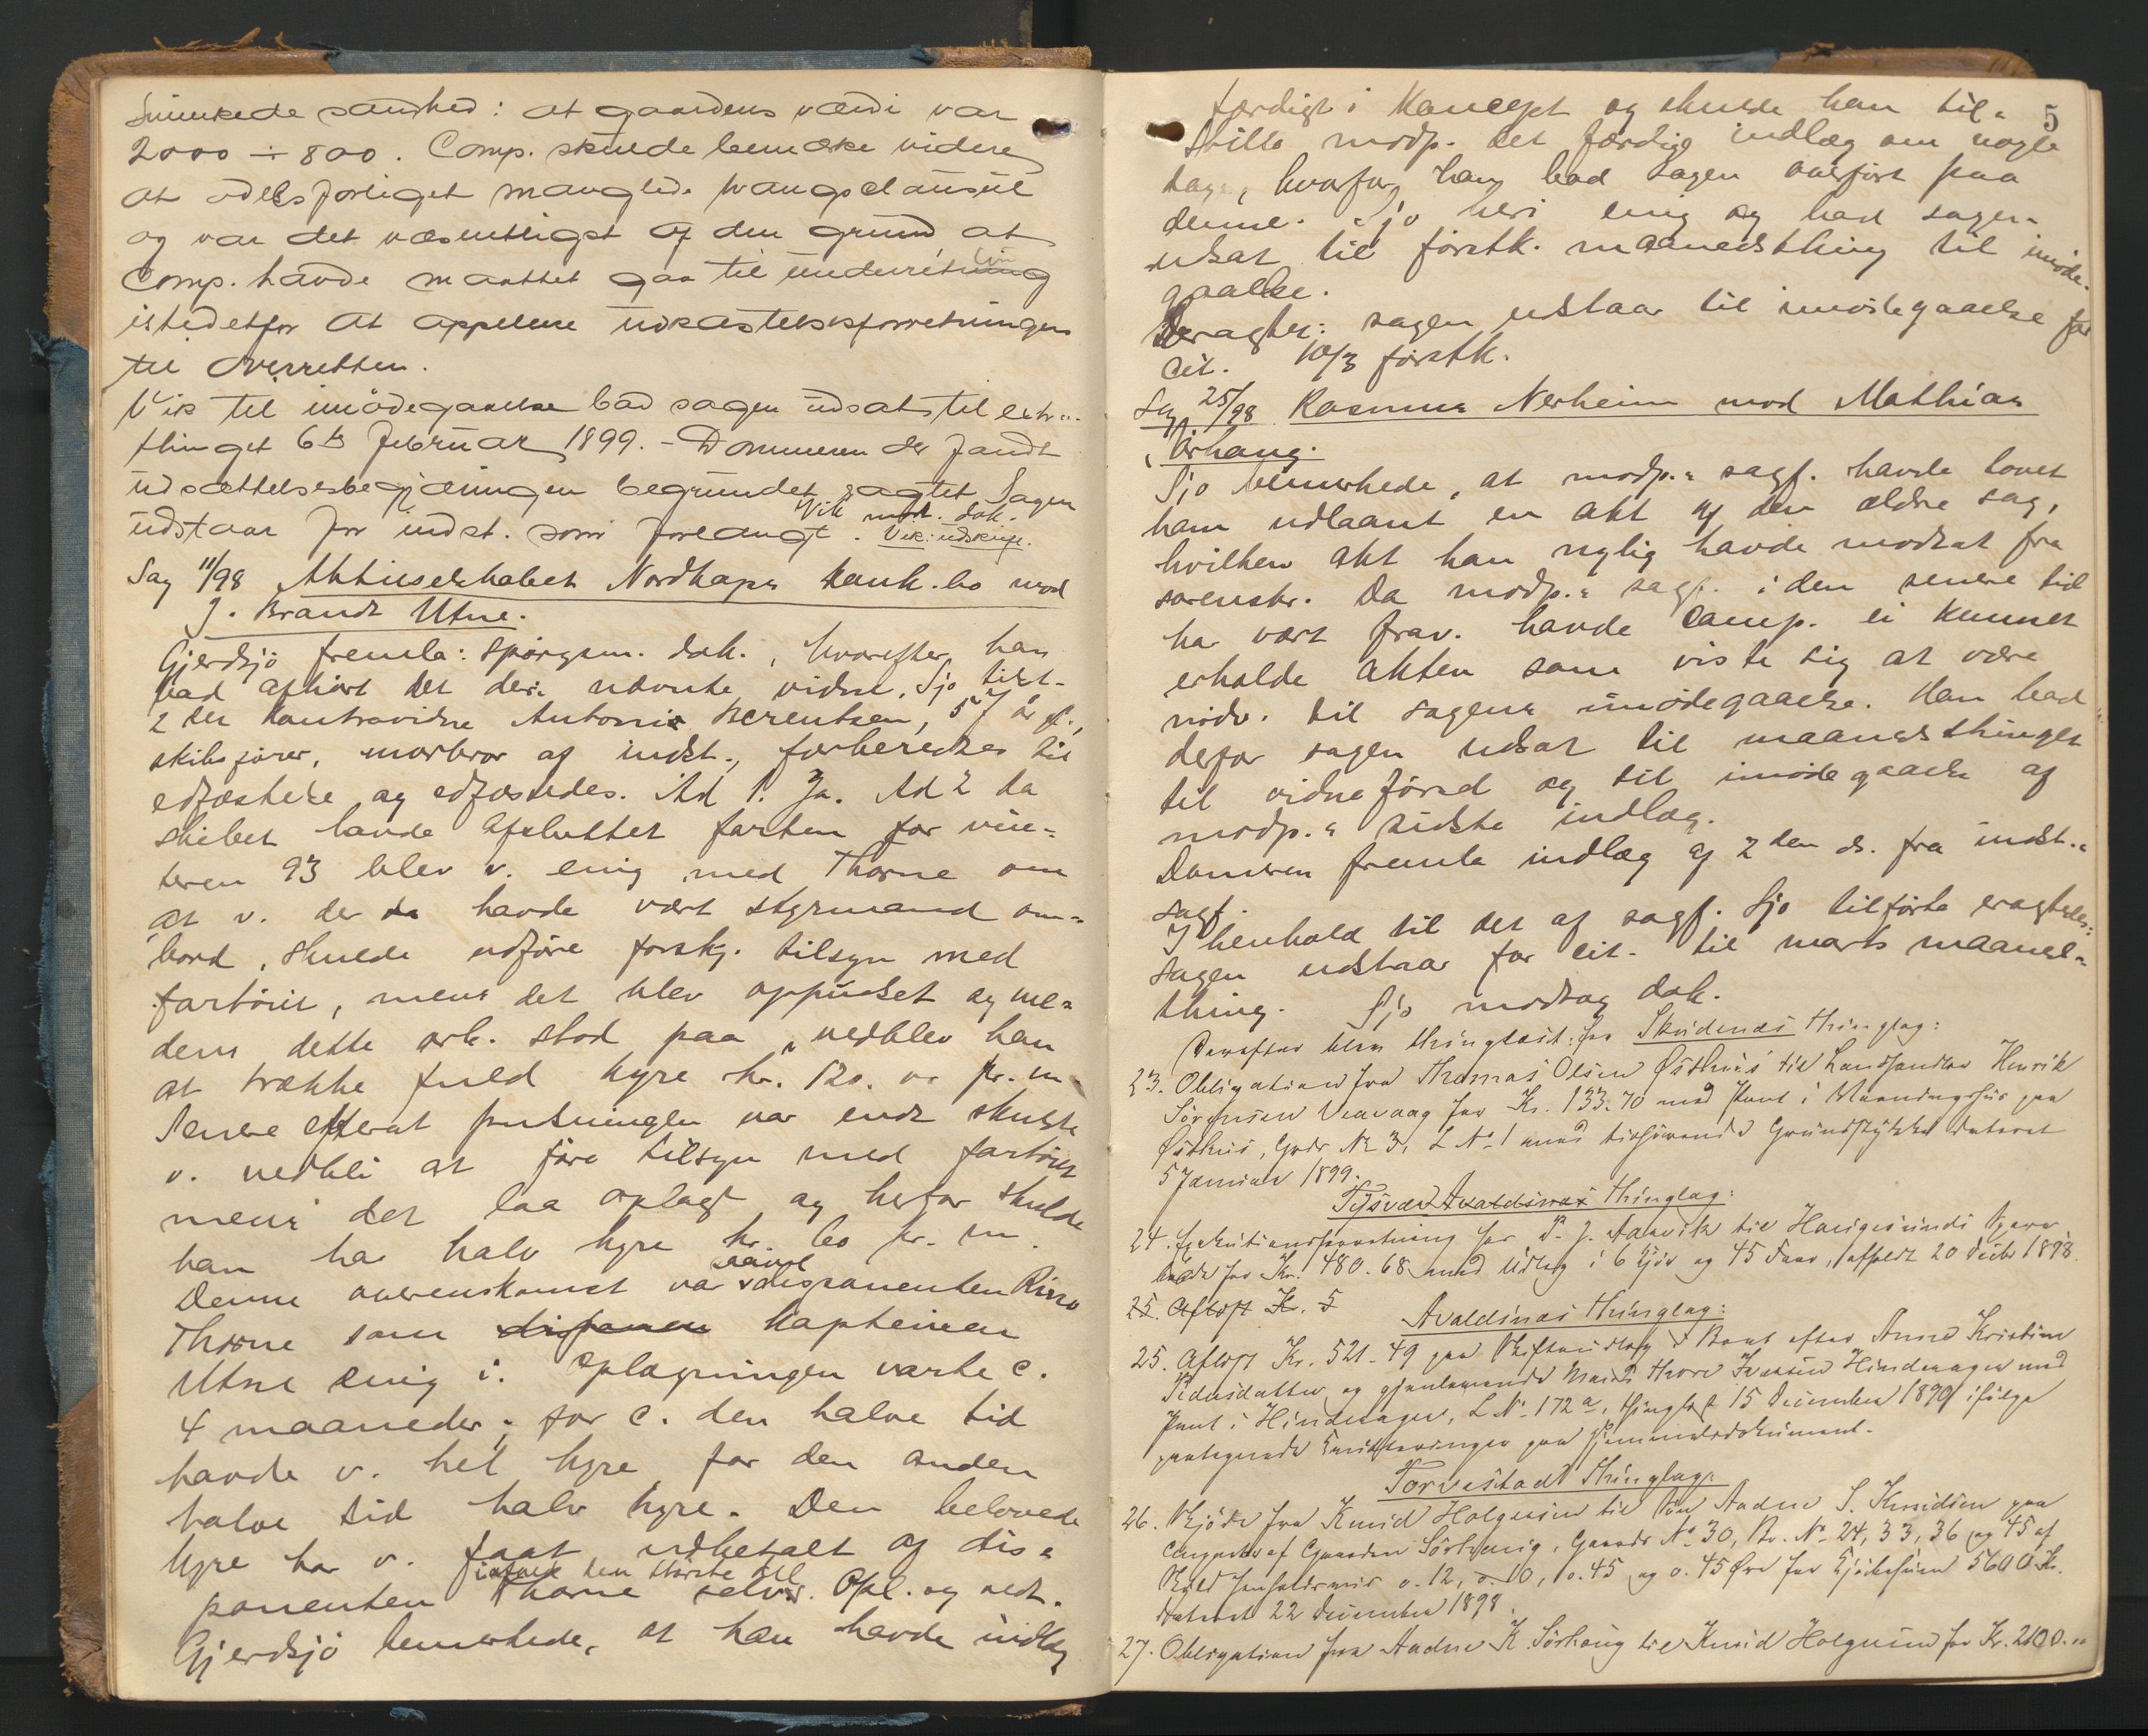 sminkede sandhed: at gaardens værdi var
2000 ÷ 800. Comp. skulde bemærke videre
at odelsforliget manglede tvangsclausul
og var det væsentligst af den grund at
Comp. havde maattet gaa til underretning
istedetfor at appellere udkastelsesforretningen
til Overretten.
Vik til imödegaaelse bad sagen udsat til extra-
thinget 6te februar 1899. - Dommeren der fandt
udsættelsesbegjæringen begrundet eragtet Sagen
udstaar for indst. som forlangt. Vik modt. dok.
Vik: udskrift.
Sag 11/98 Aktieselskabet Nordkaps hauk. bo mod
J. Brandt Utne.
Gjerdsjö fremla: spörgsm. dok., hvorefter han
bad afhört det deri nævnte vidne. Sjo tilst.
2det Kontravidne Antoni Berentsen, 57 år gl.,
skibsförer, morbror af indst., forberedtes til
edfæstelse og edfæstedes. Ad 1. Ja. Ad 2 da
skibet havde afsluttet farten for vin-
teren 93 blev v. enig med Thorne om
at v. der da havde vært styrmand om-
bord, skulde udföre forskj. tilsyn med
fartöiet, mens det blev oppudset og me-
dens dette arb. stod paa, vedblev han
at trække fuld hyre kr. 120. oo pr. m.
Senere efterat pudsningen var endt skulde
v. vedbli at före tilsyn med fartöiet
mens det laa oplagt og herfor skulde
han ha halv hyre kr. 60 pr. m.
Denne overenskomst var saavel disponenten
Thorne som disponen kapteinen
Utne enig i. Oplagningen varte c.
4 maaneder; for c. den halve tid
havde v. hel hyre for den anden
halve tid halv hyre. Den belovede
hyre har v. faat udbetalt af dis-
ialfald den störste del
ponenten Thorne selv. Opl. og vedt.
Gjerdsjö bemerkede, at han havde indlæg
5
færdigt i Koncept og skulde han til-
stille modp. det færdige indlæg om nogle
dage, hvorfor han bad sagen overfört paa
denne. Sjo heri enig og bad sagen
udsat til förstk. maanedsthing til imöde-
gaaelse.
Eragtes: sagen udstaar til imödegaaelse for
Cit. 10/3 förstk.
Sag 25/98 Rasmus Nerheim mod Mathias
Örhaug.
Sjo bemerkede, at modp.s sagf. havde lovet
ham udlaant en akt af den ældre sag,
hvilken akt han nylig havde modtat fra
sorenskr. Da modp.s sagf. i den senere tid
har vært frav. havde Comp. ei kunnet
erholde akten som viste sig at være
nödv. til sagens imödegaaelse. Han bad
derfor sagen udsat til maanedsthinget
til vidneförsel og til imödegaaelse af
modp.s sidste indlæg.
Dommeren fremla indlæg af 2den ds. fra indst.s
sagf.
I henhold til det af sagf. Sjo tilförte eragtedes:
sagen udstaar for cit. til marts maaneds-
thing. Sjo modtog dok.
Derefter blev thinglæst: for Skudenæs thinglag:
23. Obligation fra Thomas Olsen Østhus til Landhandler Henrik
Sørensen Veavaag for Kr. 133.70 med Pant i Vaaningshus paa
Østhus, Gads No 3, L No 1 med tilhørende Grundstykke dateret
5 Januar 1899.
Tysvær Avaldsnæs thinglag:
24. Exekutionsforretning hos P. J. Aarvik til Haugesunds Spare
bank for Kr. 480.68 med Udlæg i 6 Kjør og 45 Faar, afholdt 20 Decbr 1898.
25. Afløst Kr. 5
Avaldsnæs thinglag:
25. Afløst Kr. 521.49 paa Skifteudlæg i Boet efter Anne Kristine
Pedersdatter og gjenlevende Mand Thore Iversen Hindenager med
Pant i Hindenager, L No 172a, thinglæst 15 December 1890 ifølge
paategnede Kvitteringer paa Hjemmelsdokument.
Torvestad Thinglag:
26. Skjøde fra Knud Holgersen til Søn Aadne S. Knudsen paa
Parter af Gaarden Sörhaug, Gaards No 30, Br. No 24, 33, 36 og 45 af
Skyld henholdsvis o.12, o.10, o.45 og o.45 Øre for Kjøbesum 5600 Kr.
dateret 22 December 1898.
27. Obligation fra Aadne K. Sörhaug til Knud Holgersen for Kr. 2100.oo